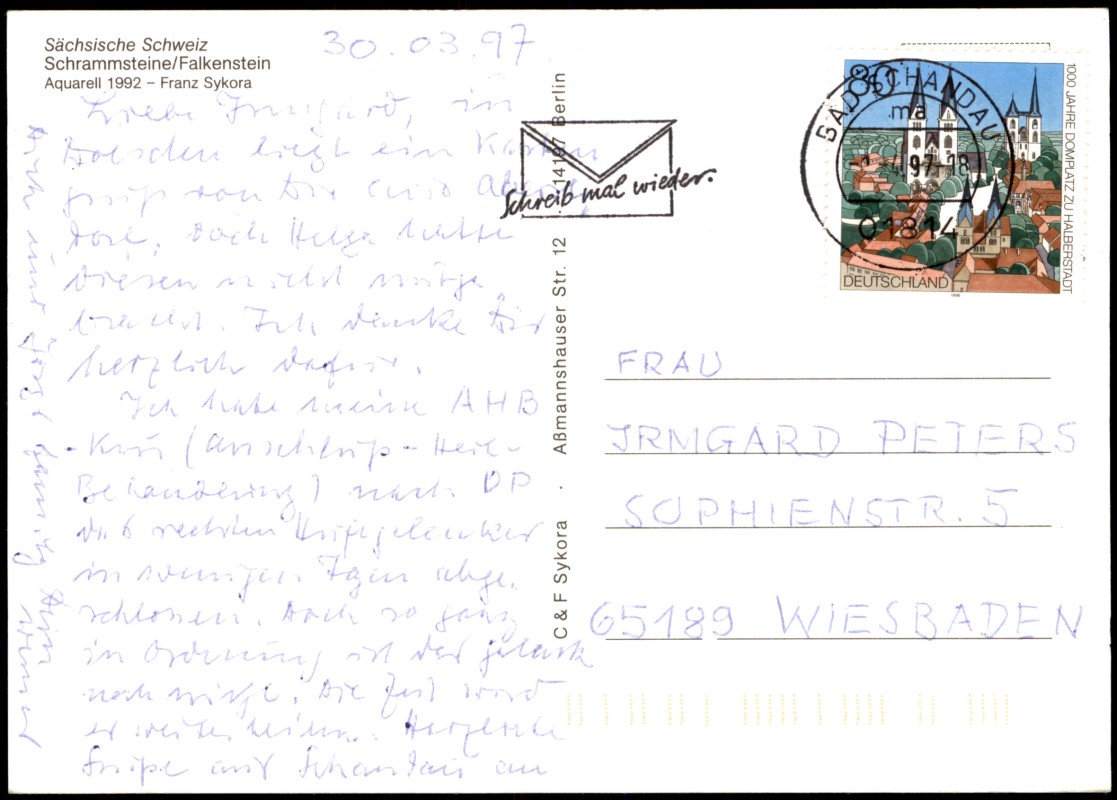 Sächsische Schweiz
Schrammsteine/Falkenstein
Aquarell 1992 – Franz Sykora
30.03.97
Liebe Irmgard, in
Dresden liegt ein Karten
gruß von Dir aus
Doch Helga hatte
diesen nicht mitge
bracht. Ich danke Dir
herzlich dafür.
Ich habe meine AHB
-Kur (Anschluß-Heil-
Behandlung) nach OP
des rechten Hüftgelenkes
in wenigen Tagen abge-
schlossen. Doch so ganz
in Ordnung ist das Gelenk
noch nicht. Die Zeit wird
es weiter heilen. Herzliche
Grüße aus Schandau an
Dich und Familie Dein
C & F Sykora · Aßmannshauser Str. 12 14197 Berlin
Schreib mal wieder.
BAD SCHANDAU
ma
97-18
01814
80
1000 JAHRE DOMPLATZ ZU HALBERSTADT
DEUTSCHLAND
1996
FRAU
IRMGARD PETERS
SOPHIENSTR. 5
65189 WIESBADEN